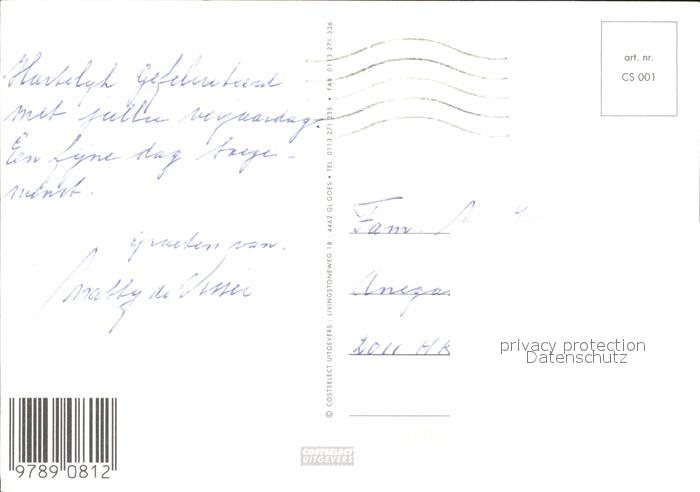 Hartelijk gefeliciteerd
met jullie verjaardag.
Een fijne dag toege-
wenst.
groeten van.
de Visser
9789 0812
© COSTSELECT UITGEVERS · LIVINGSTONEWEG 18 · 4462 GL GOES · TEL 0113 271 335 · FAX 0113 271 336
COSTSELECT
UITGEVERS
art. nr.
CS 001
Fam.
2011 HK
privacy protection
Datenschutz